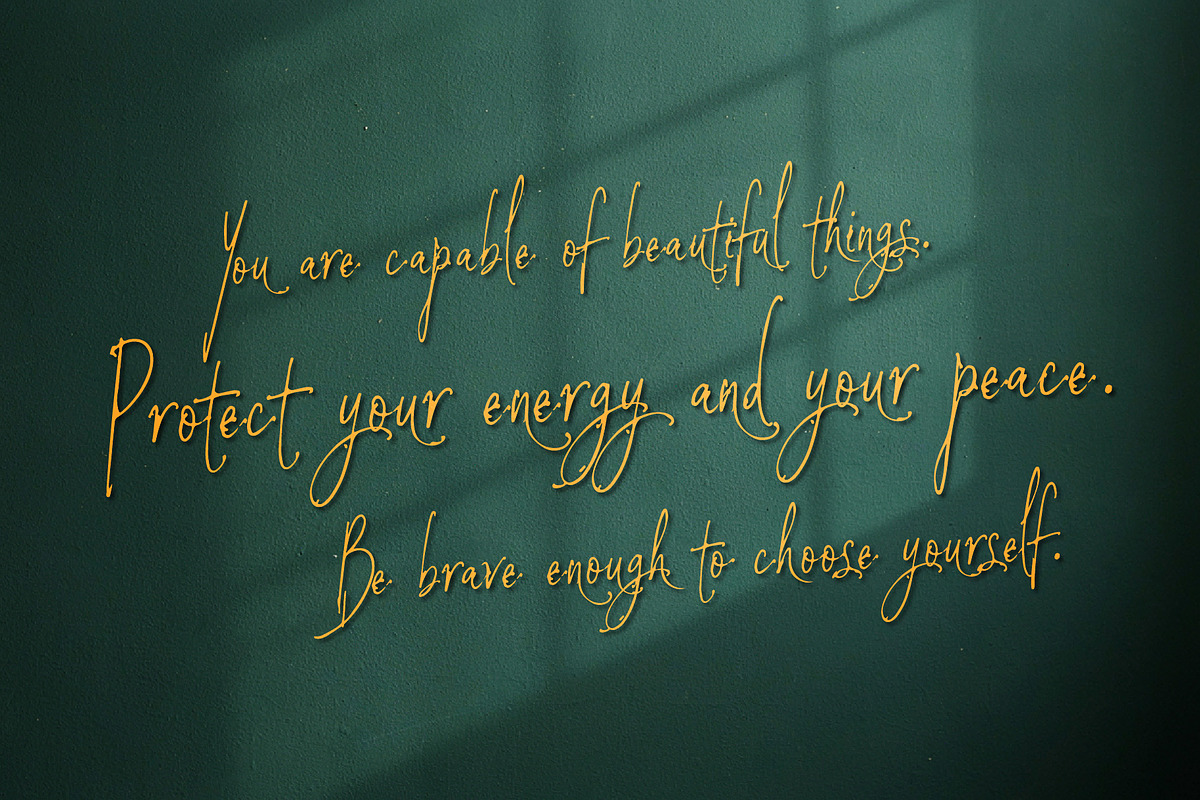 You are capable of beautiful things.
Protect your energy and your peace.
Be brave enough to choose yourself.